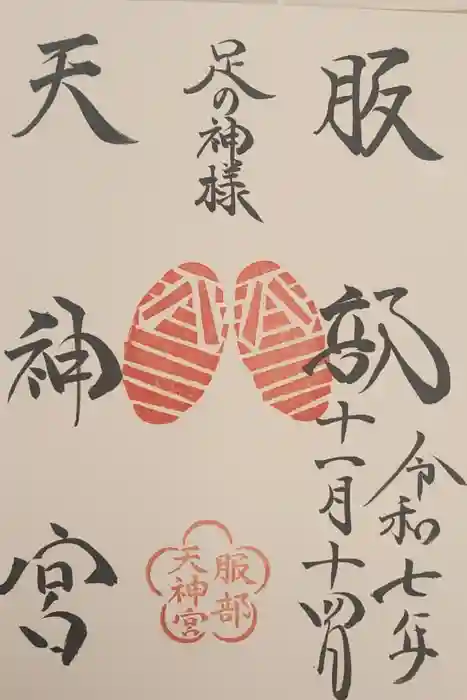 服部
令和七年
十一月十四日
足の神様
服部
天神宮
天神宮